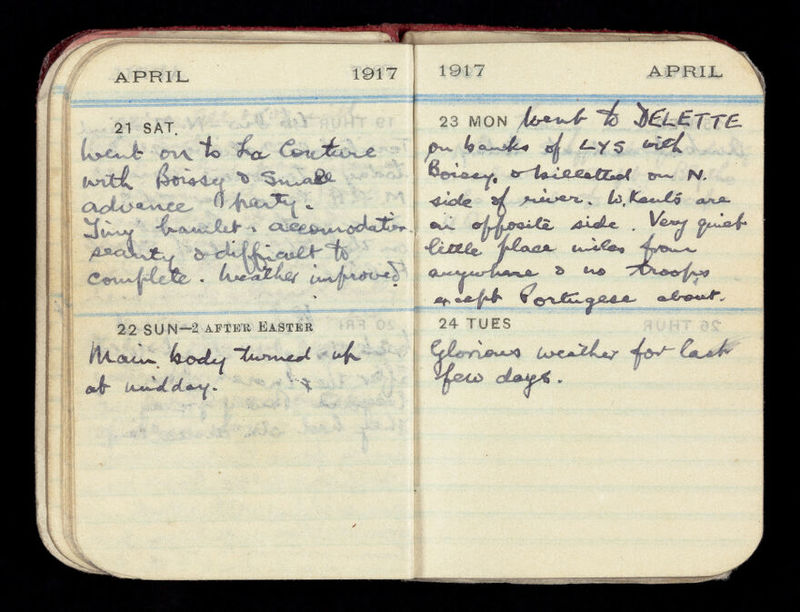 APRIL 1917
21 SAT.
Went on to La Couture
with Boissy & small
advance party.
Tiny hamlet & accomodation
scanty & difficult to
complete. Weather improved.
22 SUN—2 AFTER EASTER
Main body turned up
at midday.
1917 APRIL
23 MON Went to DELETTE
on banks of LYS with
Boissy, & billetted on N.
side of river. W. Kents are
on opposite side. Very quiet
little place miles from
anywhere & no troops
except Portugese about.
24 TUES
Glorious weather for last
few days.